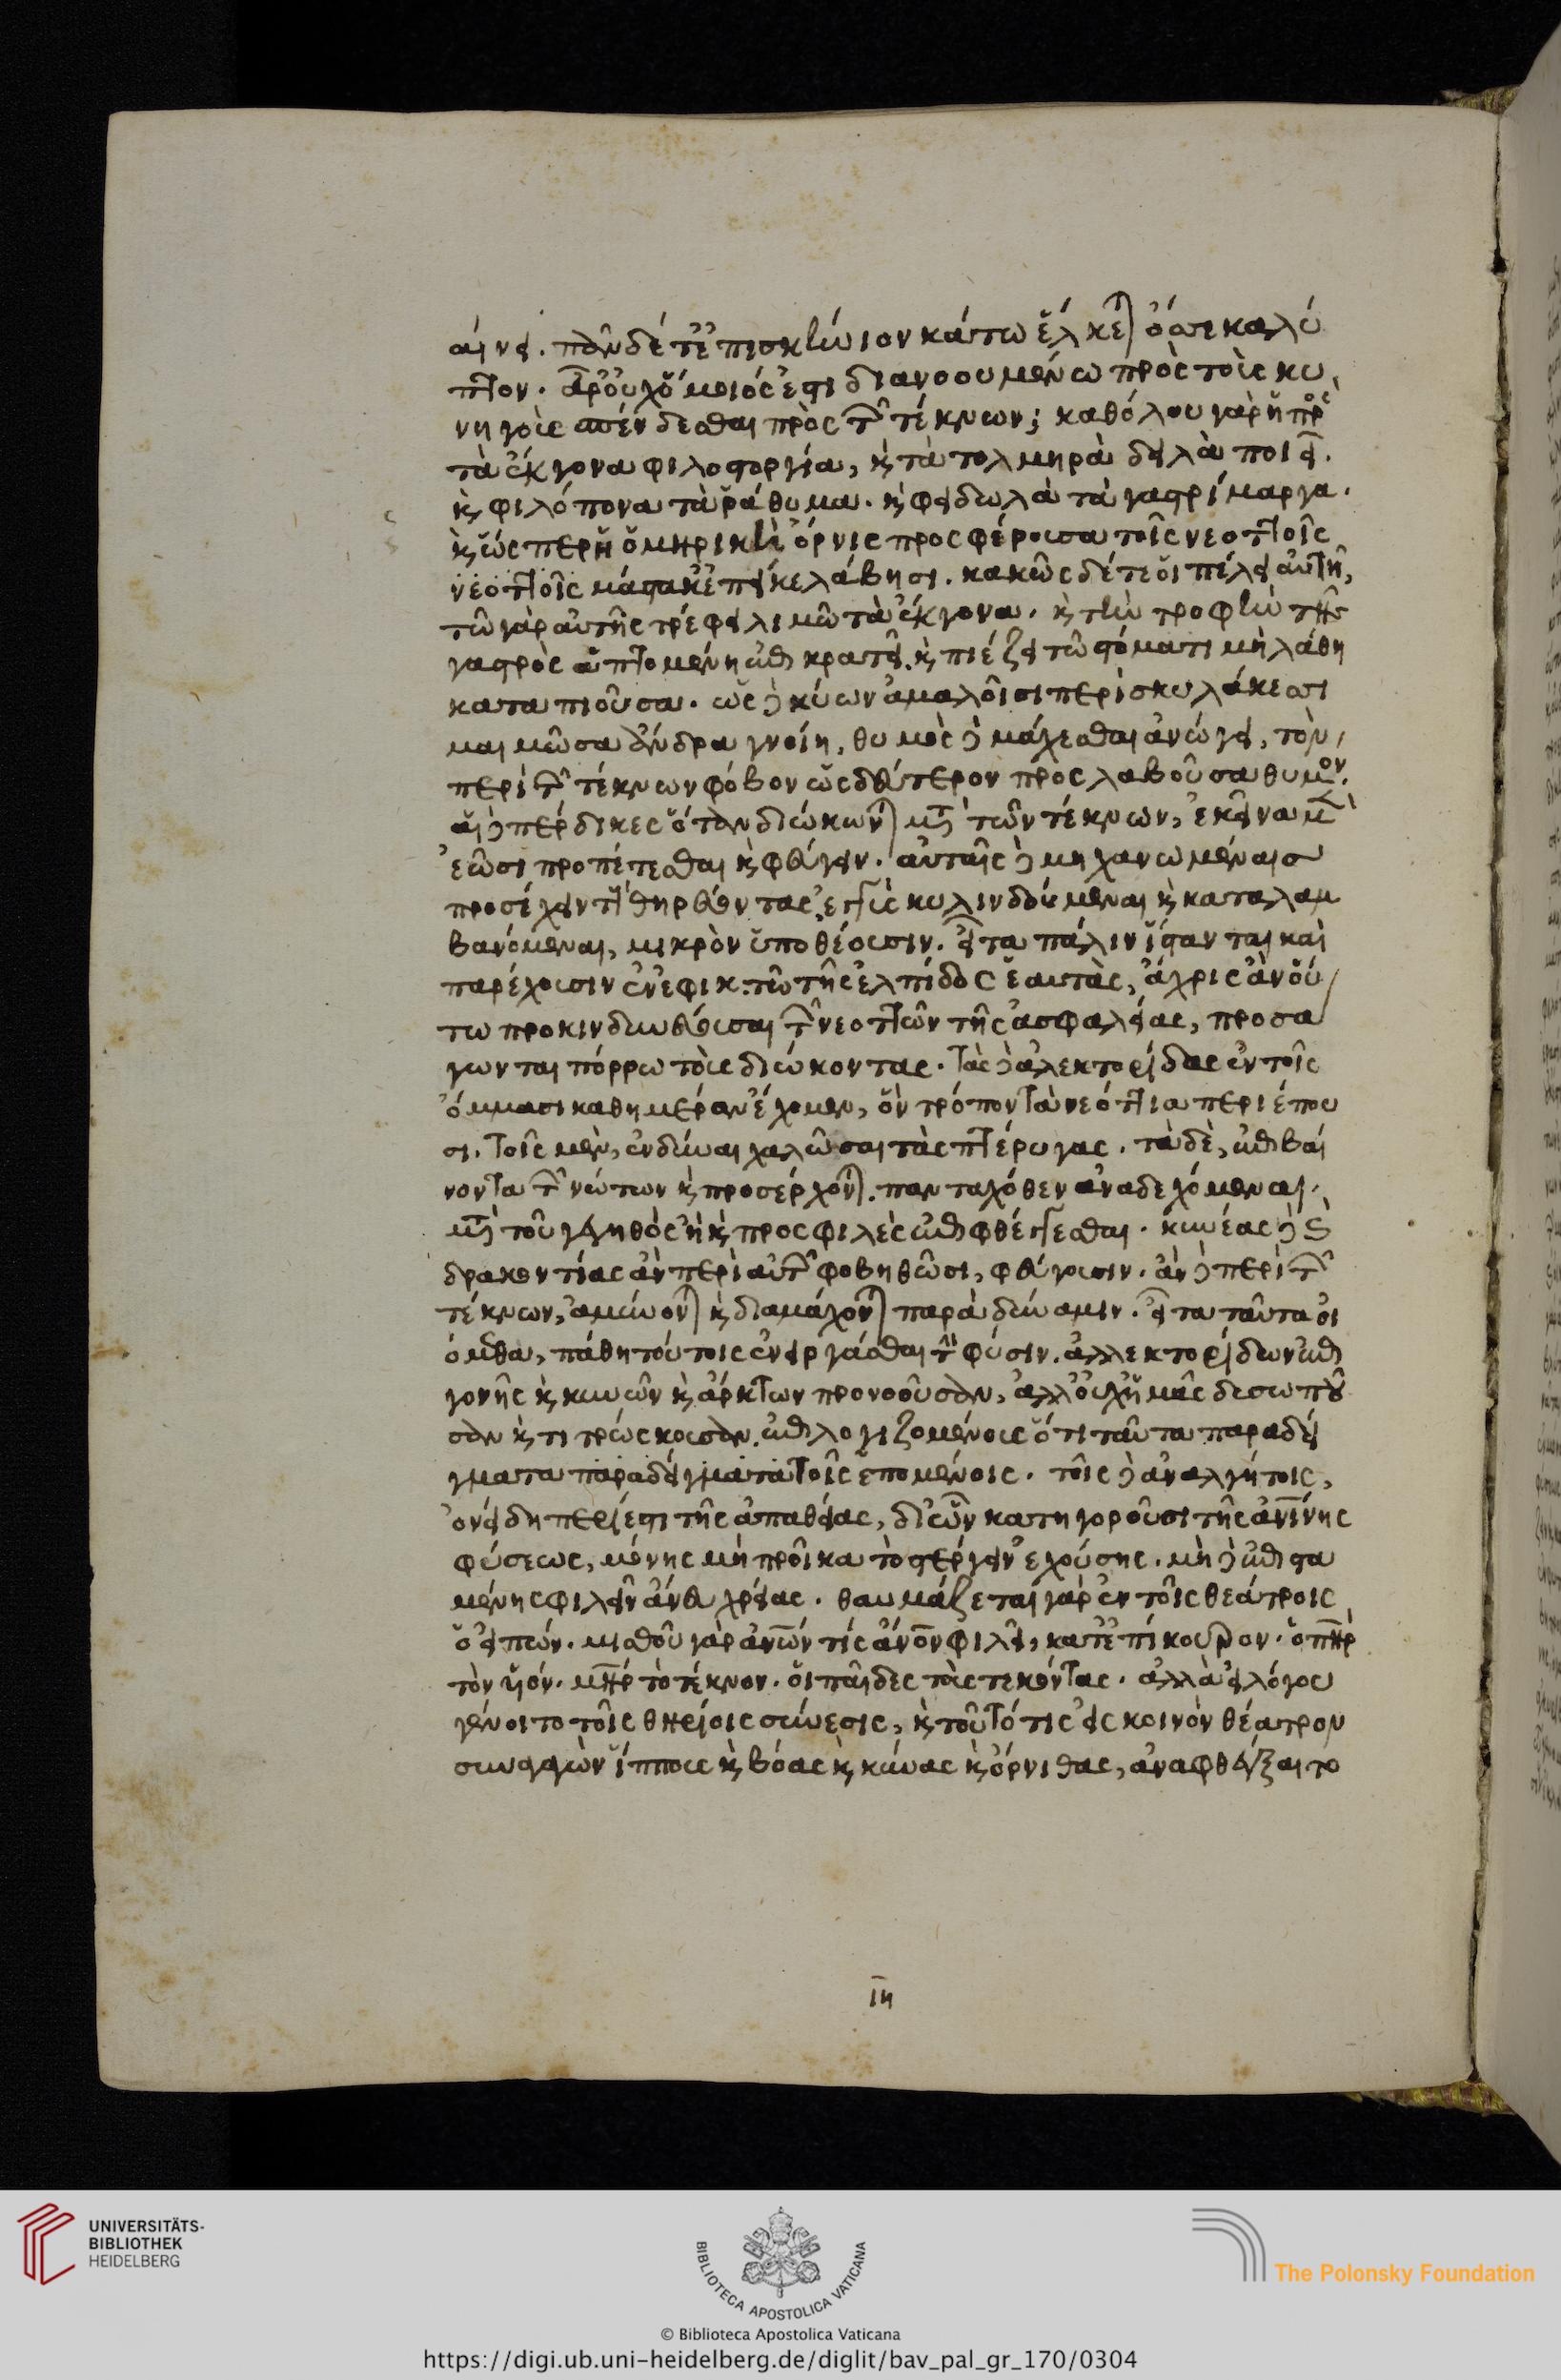 αίνει. πᾶν δέ τ' ἐπισκύνιον κάτω ἕλκεται ὄσσε καλύ
πτον. ἆρ' οὐχ ὅμοιός ἐστι διανοουμένω πρὸς τοὺς κυ
νηγοὺς σπένδεσθαι πρὸς τῶν τέκνων; καθόλου γὰρ ἡ πρὸς
τὰ ἔκγονα φιλοστοργία, καὶ τὰ τολμηρὰ δειλὰ ποιεῖ.
καὶ φιλόπονα τὰ ῥάθυμα. καὶ φειδωλὰ τὰ γαστρίμαργα.
καὶ ὥσπερ ἡ ὁμηρικὴ ὄρνις προσφέρουσα τοῖς νεοττοῖς
νεοττοῖς μάστακ' ἐπεί κε λάβησι. κακῶς δέ τε οἱ πέλει αὐτῆ,
τῶ γὰρ αὐτῆς τρέφει λιμῶ τὰ ἔκγονα. καὶ τὴν τροφὴν τῆς
γαστρὸς ἁπτομένην ἐπικρατεῖ. καὶ πιέζει τῶ στόματι μὴ λάθη
καταπιοῦσα. ὡς δὲ κύων ἀμαλοῖσι περὶ σκυλάκεσσι
μαιμῶσα ἄνδρα γνοίη, θυμὸς δὲ μάχεσθαι ἀνώγει, τὸν
περὶ τῶν τέκνων φόβον ὡς δεύτερον προσλαβοῦσα θυμόν.
αἱ δὲ πέρδικες ὅταν διώκωνται μετὰ τῶν τέκνων, ἐκεῖνα μὲν
ἐῶσι προπέτεσθαι καὶ φεύγειν. αὐταῖς δὲ μηχανωμέναις
προσέχειν τοὺς θηρεύοντας ἐγγὺς κυλινδούμεναι καὶ καταλαμ
βανόμεναι, μικρὸν ὑποθέουσιν. εἶτα πάλιν ἵστανται καὶ
παρέχουσιν ἐν ἐφικτῶ τῆς ἐλπίδος ἑαυτὰς, ἄχρις ἂν οὕ
τω προκινδυνεύουσαι τῶν νεοττῶν τῆς ἀσφαλείας, προσα
γωνται πόρρω τοὺς διώκοντας. τὰς δὲ ἀλεκτορίδας ἐν τοῖς
ὄμμασι καθημέραν ἔχομεν, ὃν τρόπον τὰ νεόττια περιέπου
σι. τοῖς μὲν, ἐνδῦναι χαλῶσαι τὰς πτέρυγας. τὰ δὲ, ἐπιβαί
νοντα τῶν νώτων καὶ προσέρχονται. πανταχόθεν ἀναδεχόμεναι.
μετὰ τοῦ γεγηθός εἰ καὶ προσφιλὲς ἐπιφθέγγεσθαι. κύνας δὲ καὶ
δράκοντας ἂν περὶ αὐτῶν φοβηθῶσι, φεύγουσιν. ἂν δὲ περὶ τῶν
τέκνων, ἀμύνονται καὶ διαμάχονται παρὰ δύναμιν. εἶτα ταῦτα οἰ
όμεθα, πάθη τούτοις ἐνειργάσθαι τὴν φύσιν. ἀλλεκτορίδων ἐπι
γονῆς καὶ κυνῶν καὶ ἄρκτων προνοοῦσαν, ἀλλ' οὐχ' ἡμᾶς δυσωποῦ
σαν καὶ τιτρώσκουσαν. ἐπιλογιζομένοις ὅτι ταῦτα παραδεί
γματα παραδείγματα τοῖς ἑπομένοις. τοῖς δὲ ἀναλγήτοις,
ὀνείδη περίεστι τῆς ἀπαθείας, δι' ὧν κατηγοροῦσι τῆς ἀνθρωπίνης
φύσεως, μόνης μὴ προῖκα τὸ στέργειν ἐχούσης. μὴ δὲ ἐπιστα
μένης φιλεῖν ἄνευ χρείας. θαυμάζεται γὰρ ἐν τοῖς θεάτροις
ὁ εἰπών. μισθοῦ γὰρ ἀνθρώπων τίς ἄνθρωπον φιλεῖ, κατ' ἐπίκουρον. ὁ πατὴρ
τὸν υἱόν. μήτηρ τὸ τέκνον. οἱ παῖδες τοὺς τεκόντας. ἀλλ' εἰ λόγου
γένοιτο τοῖς θηρίοις σύνεσις, καὶ τοῦτό τις εἰς κοινὸν θέατρον
συναγαγὼν ἵππους καὶ βόας καὶ κύνας καὶ ὄρνιθας, ἀναφθέγξαιτο
ιη
UNIVERSITÄTS-
BIBLIOTHEK
HEIDELBERG
BIBLIOTECA APOSTOLICA VATICANA
The Polonsky Foundation
© Biblioteca Apostolica Vaticana
https://digi.ub.uni-heidelberg.de/diglit/bav_pal_gr_170/0304